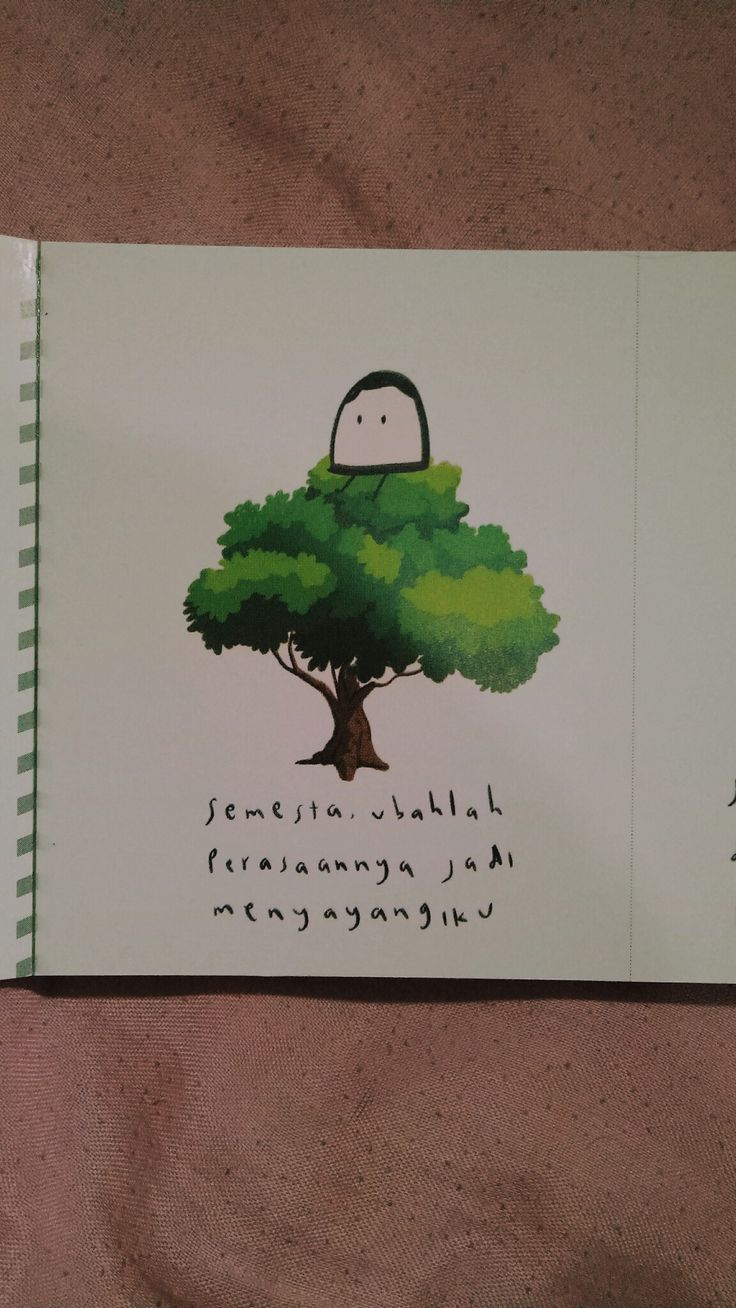 semesta, ubahlah
perasaannya jadi
menyayangiku